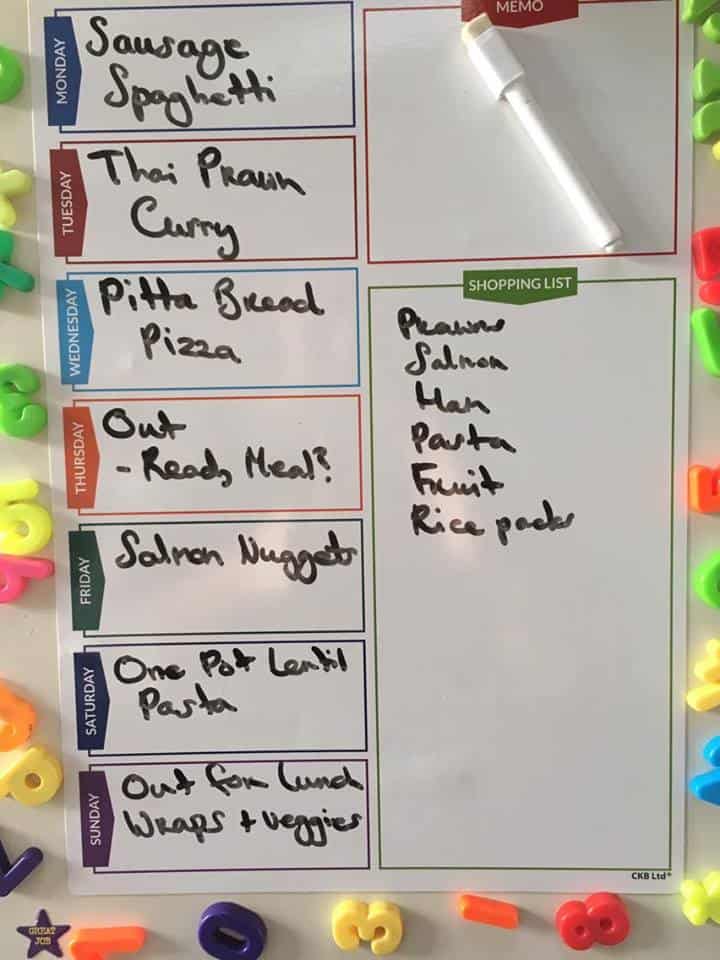 MONDAY
Sausage
Spaghetti
TUESDAY
Thai Prawn
Curry
WEDNESDAY
Pitta Bread
Pizza
THURSDAY
Out
- Ready Meal?
FRIDAY
Salmon Nuggets
SATURDAY
One Pot Lentil
Pasta
SUNDAY
Out for Lunch
Wraps + veggies
MEMO
SHOPPING LIST
Prawns
Salmon
Ham
Pasta
Fruit
Rice packs
CKB Ltd®
GREAT
JOB